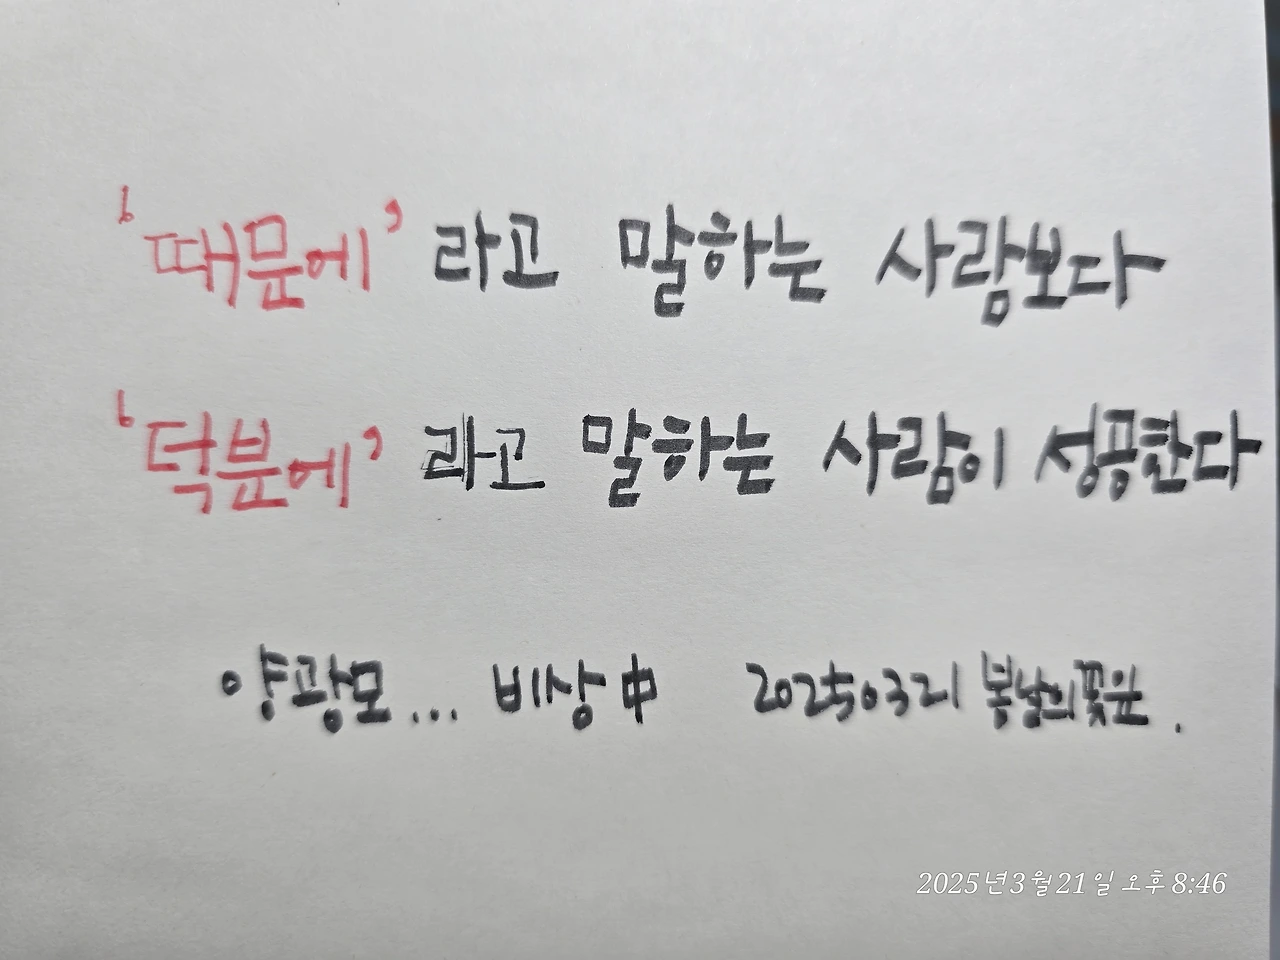 '때문에' 라고 말하는 사람보다
'덕분에' 라고 말하는 사람이 성공한다
양광모... 비상 中 20250321 봄날의꽃윤.
2025년 3월 21일 오후 8:46